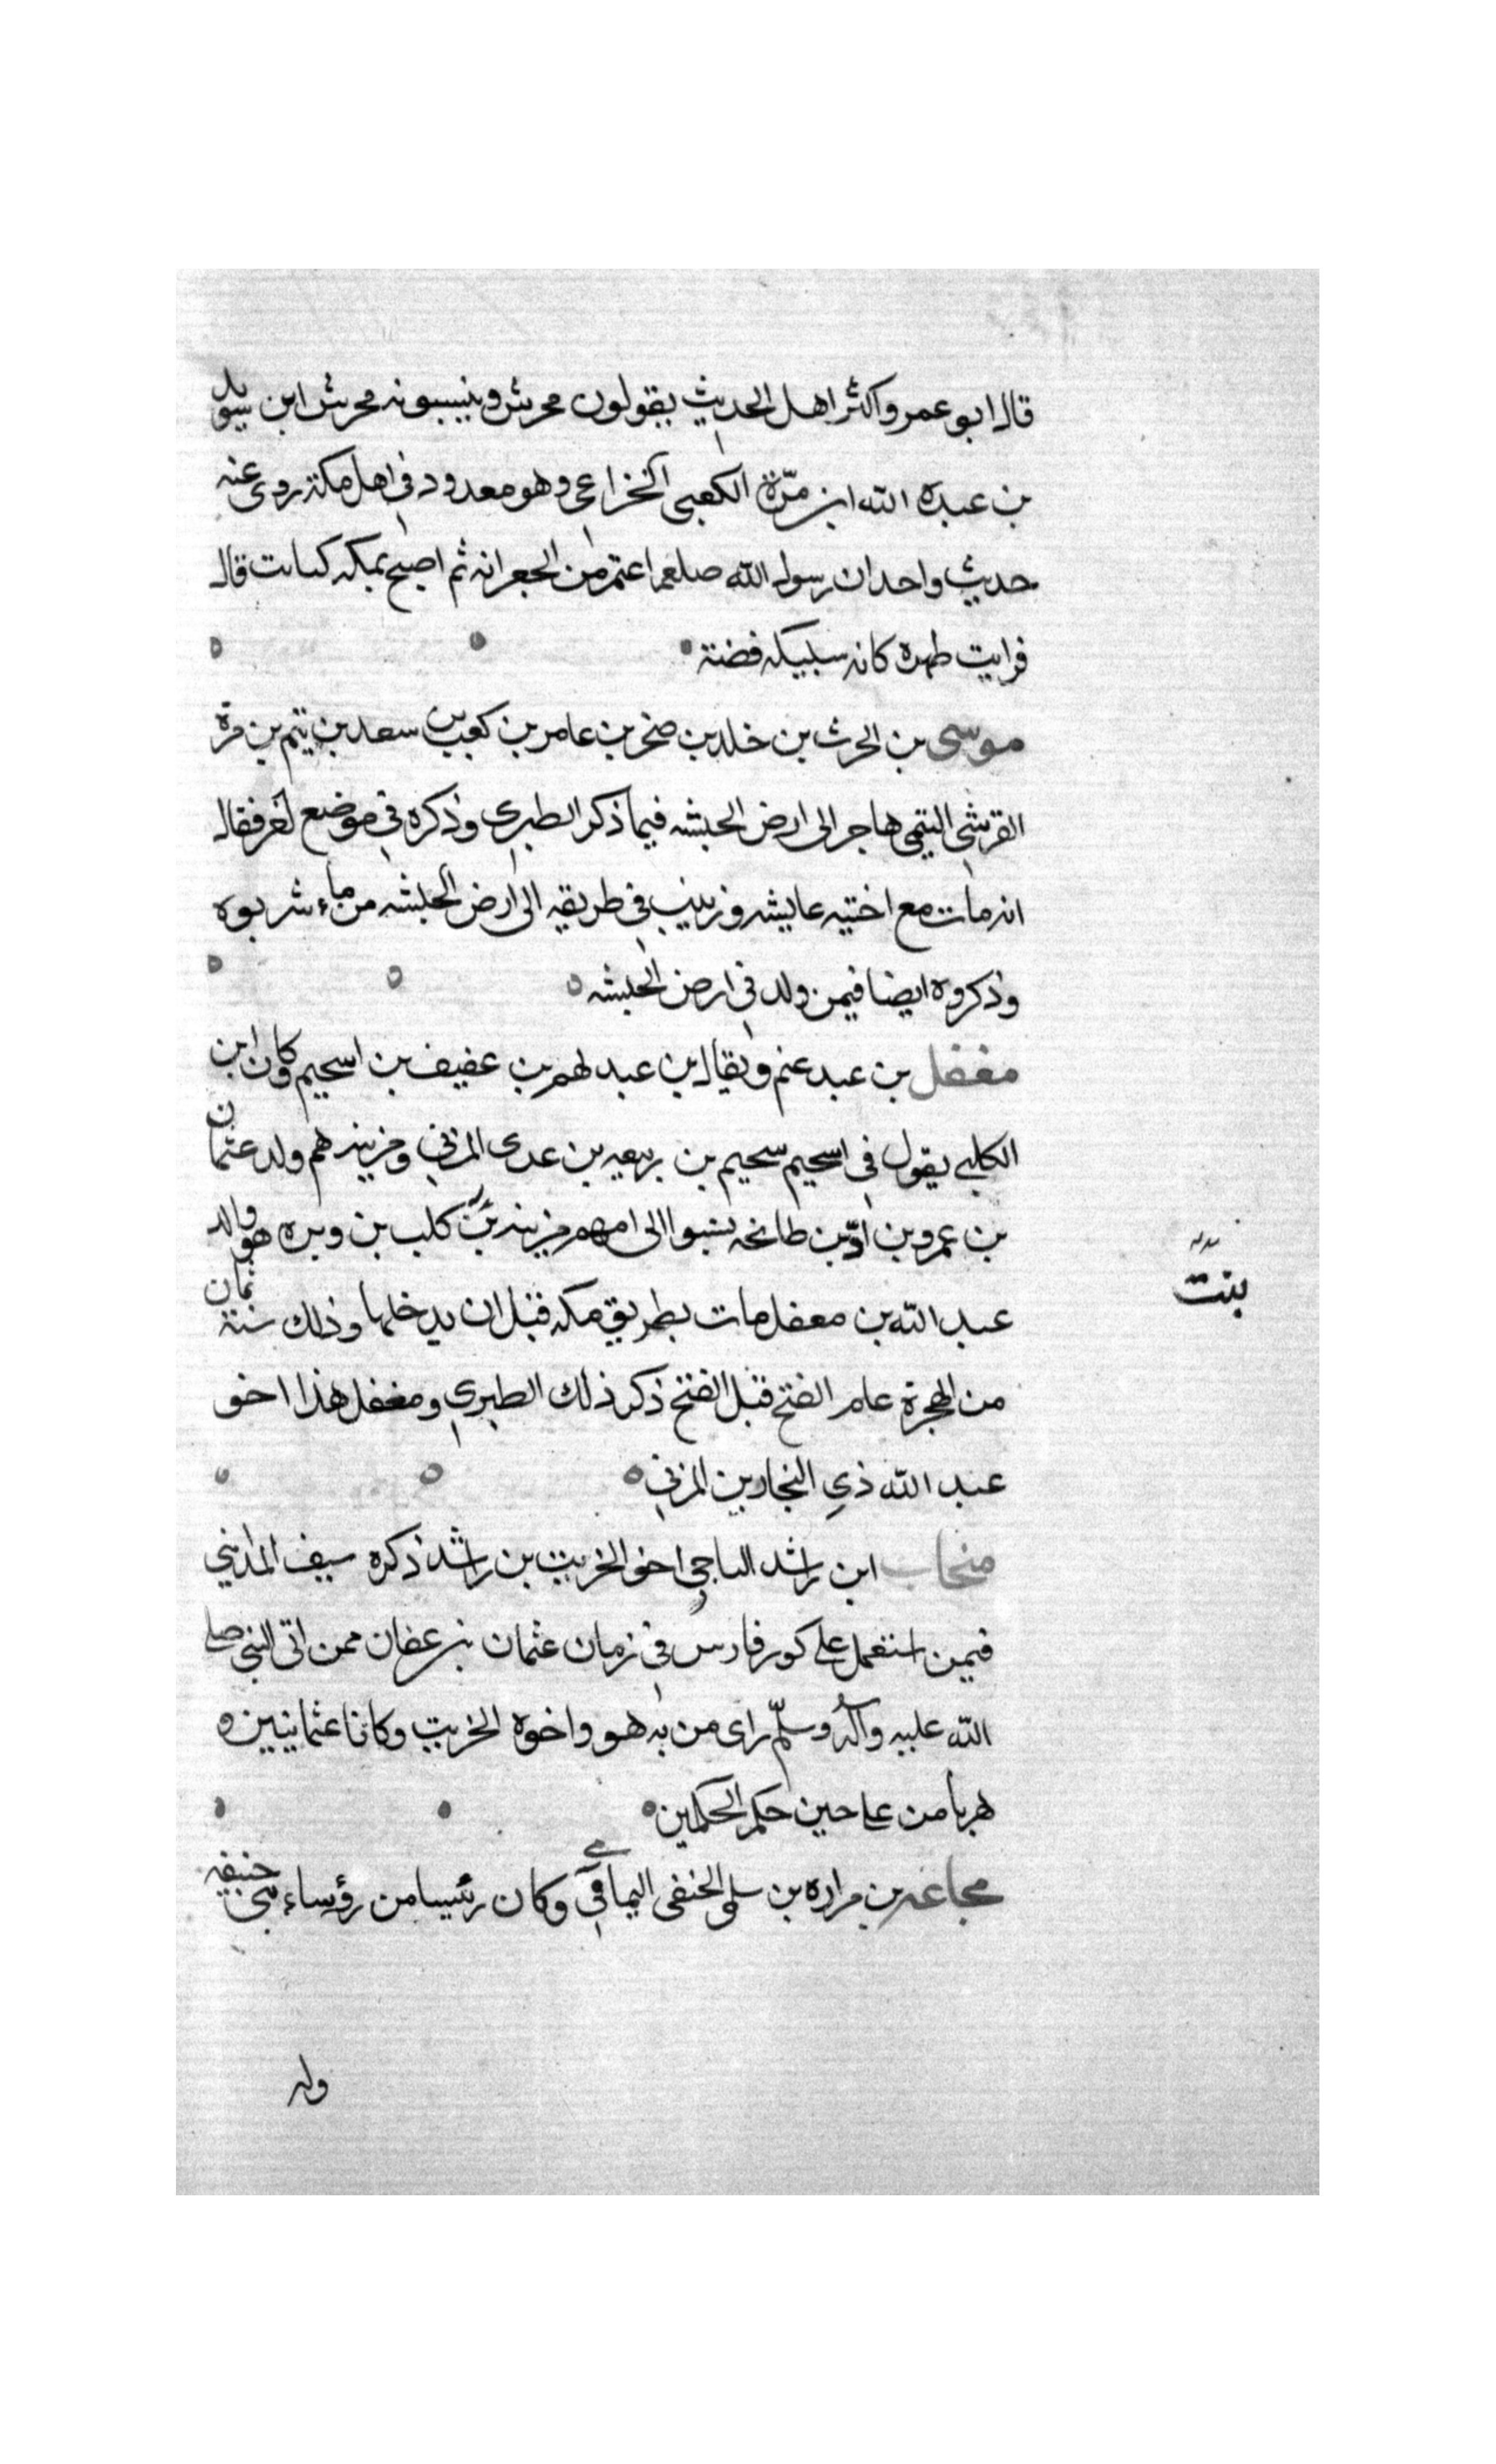 قال ابو عمر واكثر اهل الحديث يقولون محرش وينسبونه محرش ابن سويد
بن عبده الله ابن مرّة الكعبي الخزاعي وهو معدود في اهل مكة روى عنه
حديث واحد ان رسول الله صلعم اعتمر من الجعرانه ثم اصبح بمكه كبائت قال
فرايت ظهره كانه سبيكه فضة
موسى بن الحرث بن خلد بن صخر بن عامر بن كعب بن سعد بن تيم بن مرة
القرشي التيمي هاجر الى ارض الحبشه فيما ذكر الطبري وذكره في موضع آخر فقال
انه مات مع اختيه عايشه وزينب في طريقه الى ارض الحبشه من ماء شربوه
وذكروه ايضا فيمن ولد في ارض الحبشه
مغفل بن عبد غنم ويقال ابن عبد لهم بن عفيف بن اسحيم وكان ابن
الكلبي يقول في اسحيم سحيم بن ربيعه بن عدى المزني ومزينه هم ولد عثمان
بن عمرو بن ادّ بن طابخه نسبوا الى امهم مزينه بن كلب بن وبره هو والد
عبد الله بن مغفل مات بطريق مكه قبل ان يدخلها وذلك سنة ثمان
من الهجرة عام الفتح قبل الفتح ذكر ذلك الطبري ومغفل هذا اخو
عبد الله ذي النجادين المزني
منجاب ابن راشد الناجي اخو الخريت بن راشد ذكره سيف المدايني
فيمن استعمل على كور فارس في زمان عثمان بن عفان ممن اتى النبي صلى
الله عليه وآله وسلّم راى من به هو واخوه الخريت وكانا عثمانيين ه
هربا من علي حين حكم الحكمين
مجاعه بن مراره بن سلمى الحنفي اليمامي وكان رئيسا من رؤساء بني حنيفه
بنت
وله